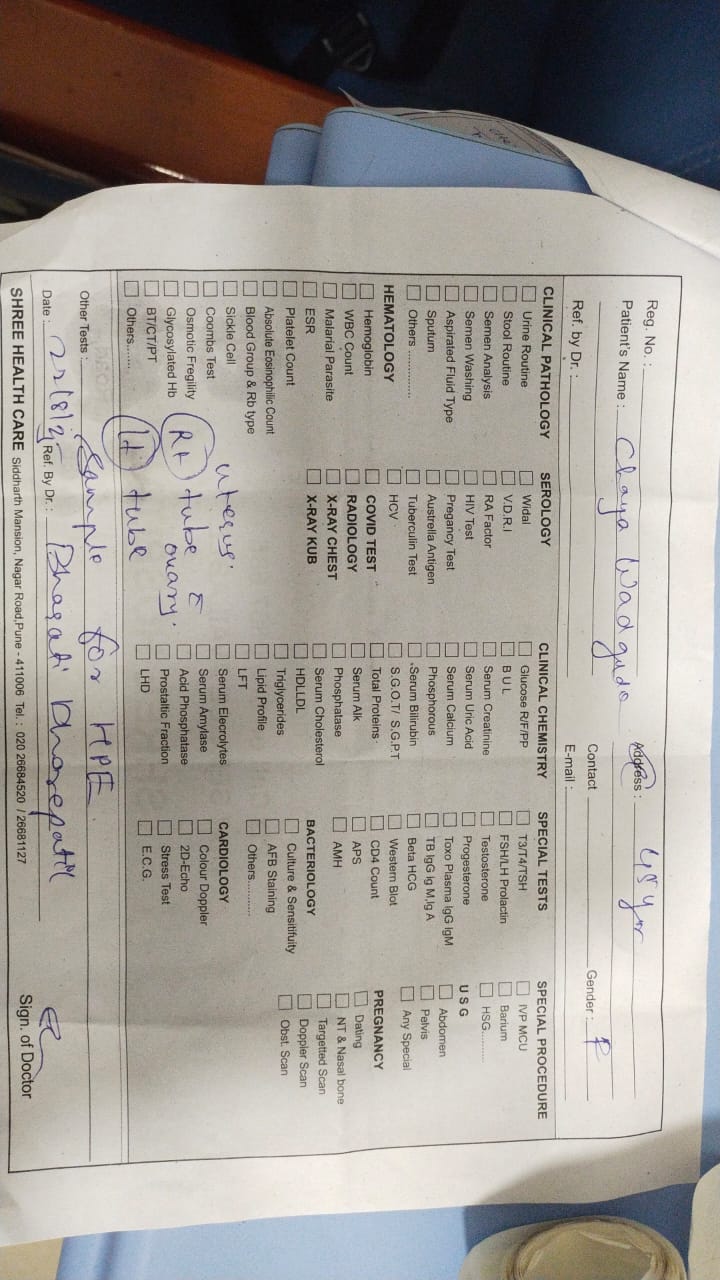 Reg. No. :
Patient's Name : Chaya Wadgude Address : 45 yr
Contact Gender : F
Ref. by Dr. : E-mail :
CLINICAL PATHOLOGY
Urine Routine
Stool Routine
Semen Analysis
Semen Washing
Aspirated Fluid Type
Sputum
Others ..............
HEMATOLOGY
Hemoglobin
WBC Count
Malarial Parasite
ESR
Platelet Count
Absolute Eosinophilic Count
Blood Group & Rb type
Sickle Cell
Coombs Test
Osmotic Fregility
Glycosylated Hb
BT/CT/PT
Others........
SEROLOGY
Widal
V.D.R.I
RA Factor
HIV Test
Pregancy Test
Austrella Antigen
Tuberculin Test
HCV
COVID TEST
RADIOLOGY
X-RAY CHEST
X-RAY KUB
uterus.
Rt tube c̄
ovary.
Lt tube
CLINICAL CHEMISTRY
Glucose R/F/PP
B U L
Serum Creatinine
Serum Uric Acid
Serum Calcium
Phosphorous
Serum Bilirubin
S.G.O.T/ S.G.P.T
Total Proteins
Serum Alk
Phosphatase
Serum Cholesterol
HDLLDL
Triglycerides
Lipid Profile
LFT
Serum Elecrolytes
Serum Amylase
Acid Phosphatase
Prostaltic Fraction
LHD
SPECIAL TESTS
T3/T4/TSH
FSH/LH Prolactin
Testosterone
Progesterone
Toxo Plasma IgG IgM
TB IgG Ig M,Ig A
Beta HCG
Western Blot
CD4 Count
APS
AMH
BACTERIOLOGY
Culture & Sensitifuity
AFB Staining
Others..........
CARDIOLOGY
Colour Doppler
2D-Echo
Stress Test
E.C.G.
SPECIAL PROCEDURE
IVP MCU
Barium
HSG.........
U S G
Abdomen
Pelvis
Any Special
PREGNANCY
Dating
NT & Nasal bone
Targetted Scan
Doppler Scan
Obst. Scan
Other Tests : Sample for HPE.
Date : 22/8/25 Ref. By Dr. : Bhagati Dhorepatil
Sign. of Doctor
SHREE HEALTH CARE Siddharth Mansion, Nagar Road,Pune - 411006 Tel. : 020 26684520 / 26681127